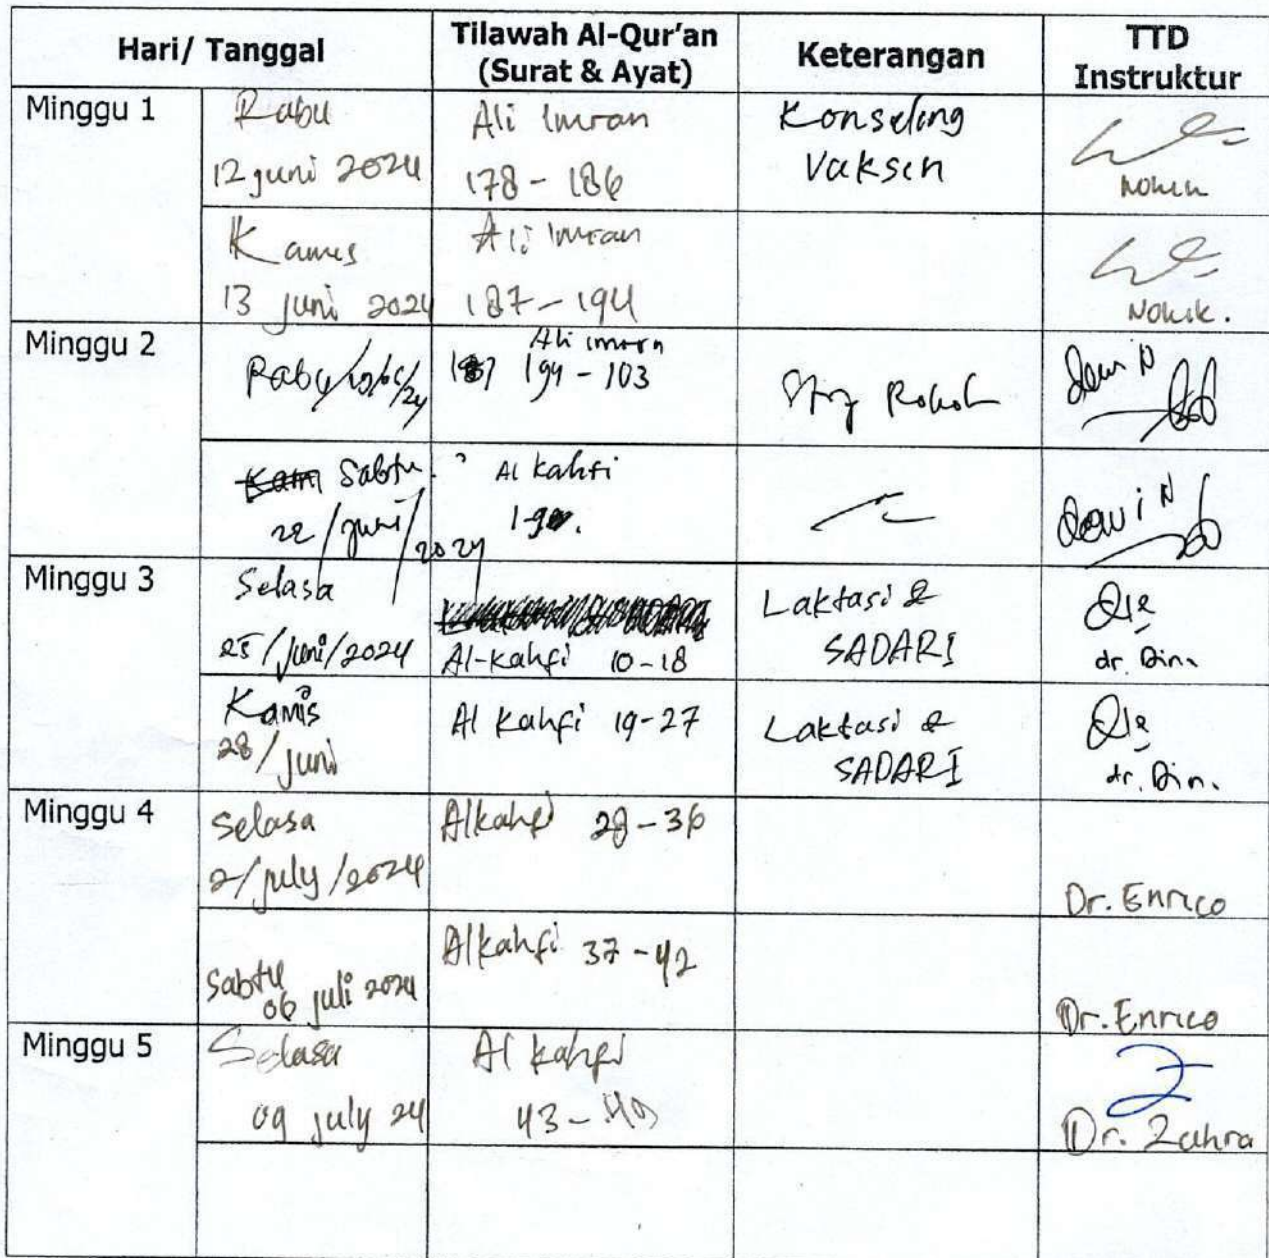 Hari/ Tanggal
Tilawah Al-Qur'an
(Surat & Ayat)
Keterangan
TTD
Instruktur
Minggu 1
Rabu
12 juni 2024
Ali Imran
178 - 186
Konseling
Vaksin
Kamis
13 juni 2024
Ali Imran
187 - 194
Minggu 2
Rabu/19/06/24
Ali imron
194 - 103
Stop Rokok
Dewi N
Sabtu
22/juni/2024
Al kahfi
Dewi N
Minggu 3
Selasa
25/juni/2024
Al-kahfi 10-18
Laktasi &
SADARI
dr. Din.
Kamis
28/juni
Al kahfi 19-27
Laktasi &
SADARI
dr. Din.
Minggu 4
Selasa
2/july/2024
Alkahfi 28-36
Dr. Enrico
Sabtu
06 juli 2024
Alkahfi 37-42
Dr. Enrico
Minggu 5
Selasa
09 july 24
Al kahfi
43 -
Dr. Zahra